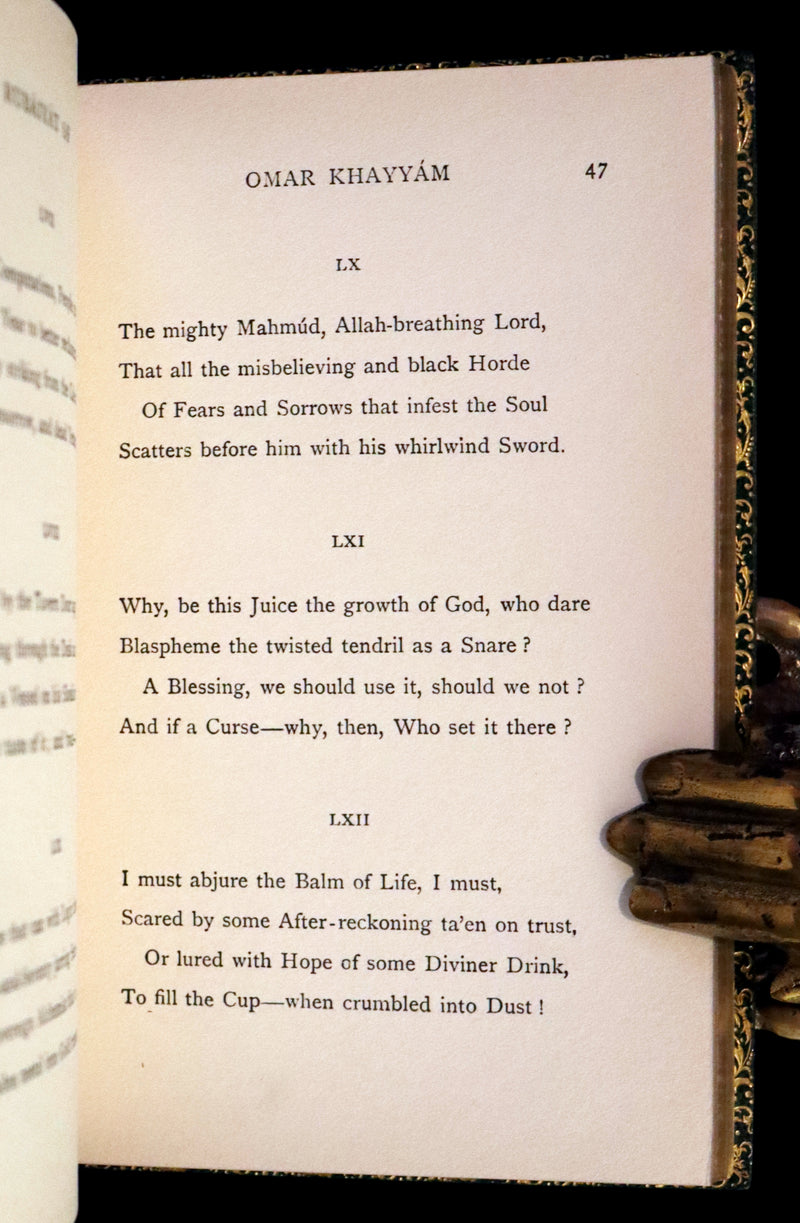 OMAR KHAYYÁM 47
LX
The mighty Mahmúd, Allah-breathing Lord,
That all the misbelieving and black Horde
Of Fears and Sorrows that infest the Soul
Scatters before him with his whirlwind Sword.
LXI
Why, be this Juice the growth of God, who dare
Blaspheme the twisted tendril as a Snare ?
A Blessing, we should use it, should we not ?
And if a Curse—why, then, Who set it there ?
LXII
I must abjure the Balm of Life, I must,
Scared by some After-reckoning ta’en on trust,
Or lured with Hope of some Diviner Drink,
To fill the Cup—when crumbled into Dust !